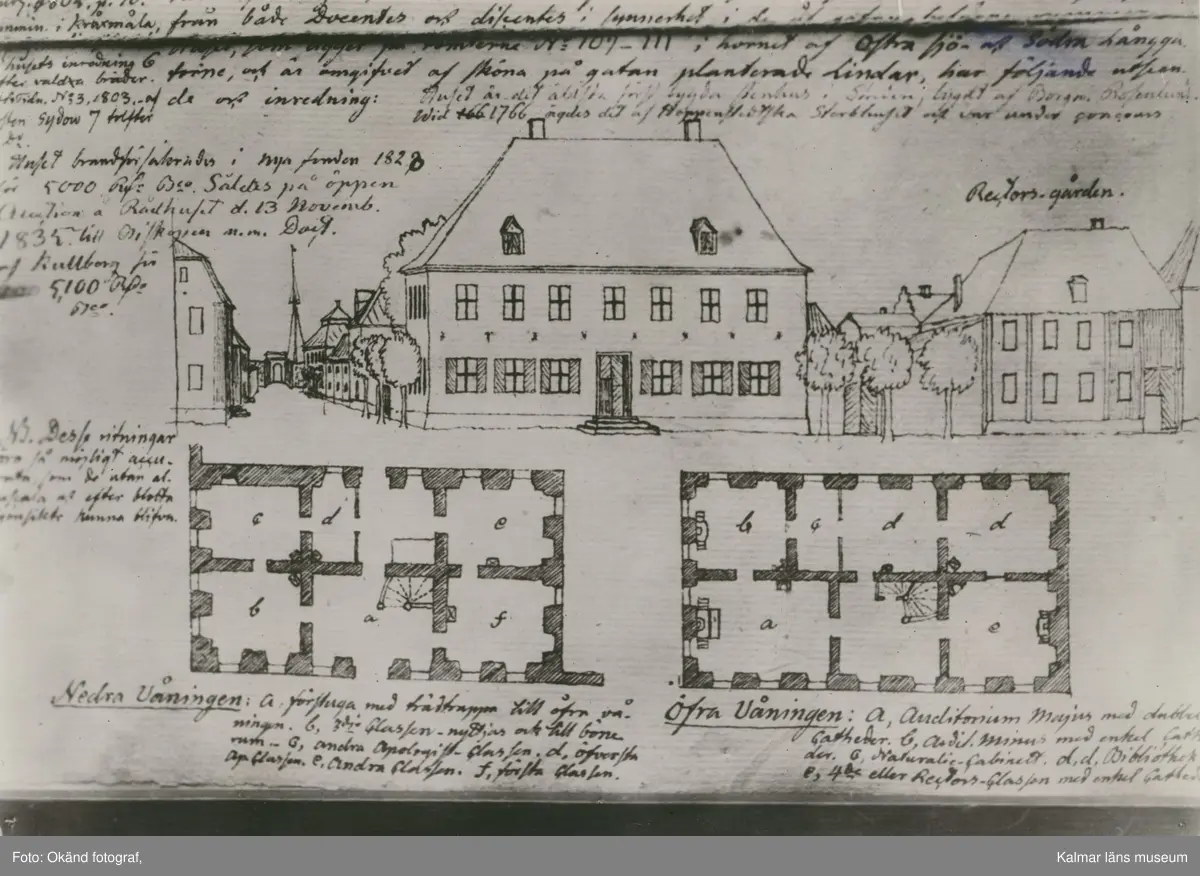 i Kråxmåla, från både Docentes och discentes i synnerhet i de
som ligger på tomterne No 109-111 i hornet af Östra Sjö- och Södra Långga-
torne, och är omgifvet af sköna på gatan planterade Lindar, har följande utseen-
de och inredning:
Huset är det äldsta först bygda stenhus i Staden, bygdt af Borgm. Rosenlund.
Wid 1766 ägdes det af Hoppenstedtska Sterbhuset och var under concurs
husets inredning 6
No 3, 1803.
Sydow 7 tolfter
Huset brandförsäkrades i nya fonden 1828
för 5000 Rdr Bco. Såldes på öppen
Auction å Rådhuset d. 13 Novemb.
1835 till Biskopen m.m. Doct.
Kullberg för
5,100 Rdr
Bco.
Rectors-gården.
NB. Desse ritningar
äro så möjligt accu-
rata som de utan al-
skala och efter blotta
ögonsikte kunna blifva.
c d e
b a f
b c d d
a e
Nedra Våningen: a, förstuga med trädtrappa till öfra vå-
ningen. b, 3die Classen - nyttjas ock till böne
rum - c, andra Apologist-Classen. d, öfversta
Ap.Classen. e, Andra Classen. f, första Classen.
Öfra Våningen: a, Auditorium Majus med dubbel
Catheder. b, Audit. Minus med enkel Cathe
der. c, Naturalie-Cabinett. d, d, Bibliothek
e, 4de eller Rectors-Classen med enkel Cathe
Foto: Okänd fotograf,
Kalmar läns museum